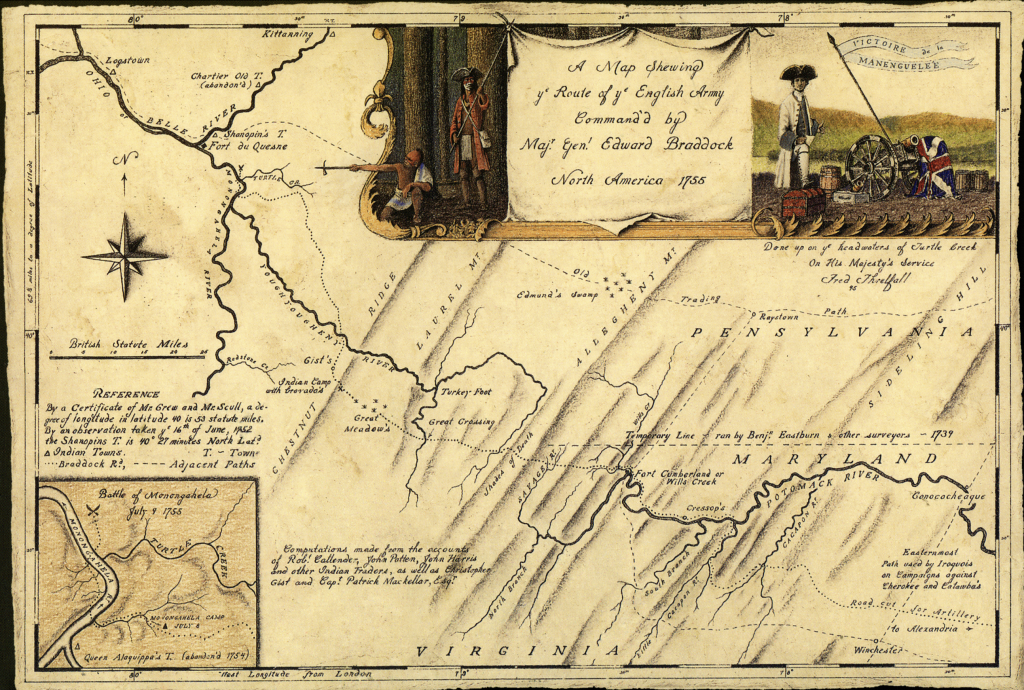 80
79
78
Kittanning
Logstown
Chartier Old T.
(abandon'd)
OHIO
BELLE RIVER
Shanopin's T.
Fort du Quesne
N
TURTLE CR.
MONONGAHELA
RIVER
YOUGHYOUGHENY
RIVER
A Map Shewing
yᵉ Route of yᵉ English Army
Command'd by
Majʳ Genˡ Edward Braddock
North America 1755
VICTOIRE de la
MANENGUELEE
Done up on yᵉ headwaters of Turtle Creek
On His Majesty's Service
Fred Threlfall
95
CHESTNUT RIDGE
LAUREL Mᵗ
ALLEGHENY Mᵗ
Old
Trading
Path
Edmund's Swamp
Raystown
PENSYLVANIA
SIDELING HILL
40°
40°
British Statute Miles
Redstone Cr.
Gist's
Indian Camp
with Crovado's
Great
Meadows
Turkey Foot
Great Crossing
REFERENCE
By a Certificate of Mr. Grew and Mr. Scull, a de-
gree of longitude in latitude 40 is 53 statute miles.
By an observation taken yᵉ 16ᵗʰ of June, 1752
the Shanopins T. is 40° 27 minutes North Latᵈ
Indian Towns. T. – Town
Braddock Rᵈ, Adjacent Paths
Temporary Line run by Benjⁿ Eastburn & other surveyors - 1739
MARYLAND
Shades of Death
SAVAGE R.
Wills Cr.
Fort Cumberland or
Wills Creek
Cressop's
POTOMACK RIVER
Conococheague
CACAPON R.
Battle of Monongahela
July 9 1755
MONONGAHELA R.
TURTLE CREEK
MONONGAHELA CAMP
JULY 8
Queen Alaquippa's T. (abandon'd 1754)
Computations made from the accounts
of Robᵗ Callender, John Potten, John Harris
and other Indian Traders, as well as Christopher
Gist and Capᵗ Patrick Mackellar, Esqʳ
North Branch
South Branch
Little Cacapon R.
Easternmost
Path used by Iroquois
on Campaigns against
Cherokee and Catawbas
Road cut for Artillery
to Alexandria
Winchester
VIRGINIA
80°
West Longitude from London
79
78